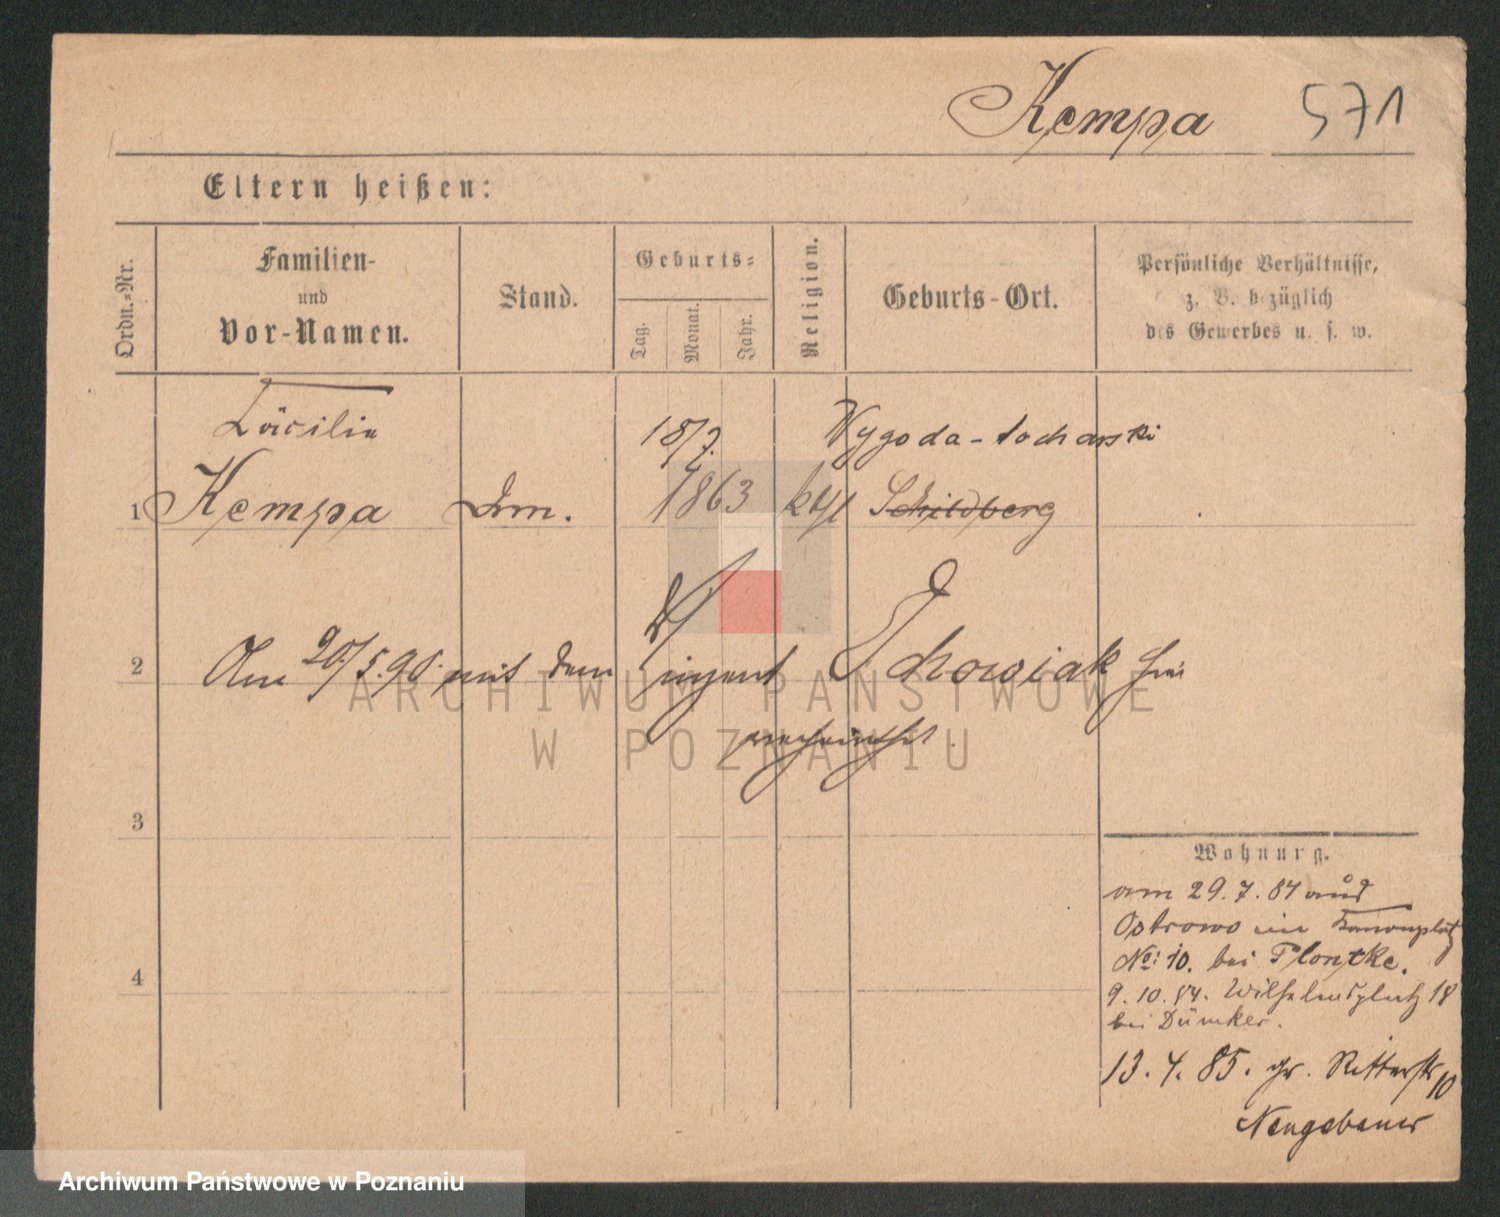 Kempa 571
Eltern heißen:
Ordn.-Nr.
Familien-
und
Vor-Namen.
Stand.
Geburts=
Tag.
Monat.
Jahr.
Religion.
Geburts-Ort.
Persönliche Verhältnisse,
z. B. bezüglich
des Gewerbes u. s. w.
Cäcilie 18/7. Wygoda-tocharski
1 Kempa 1863 kth Schildberg
2 Am 20/5.90. mit dem Chowiak hier
verheirathet.
3
4
Wohnung.
am 29.7.84 aus
Ostrowo im Kanonplatz
No: 10. bei Plontke.
9.10.84. Wilhelmsplatz 18
bei Dümker.
13.4.85. gr. Ritterstr 10
Neugebauer
ARCHIWUM PAŃSTWOWE
W POZNANIU
Archiwum Państwowe w Poznaniu